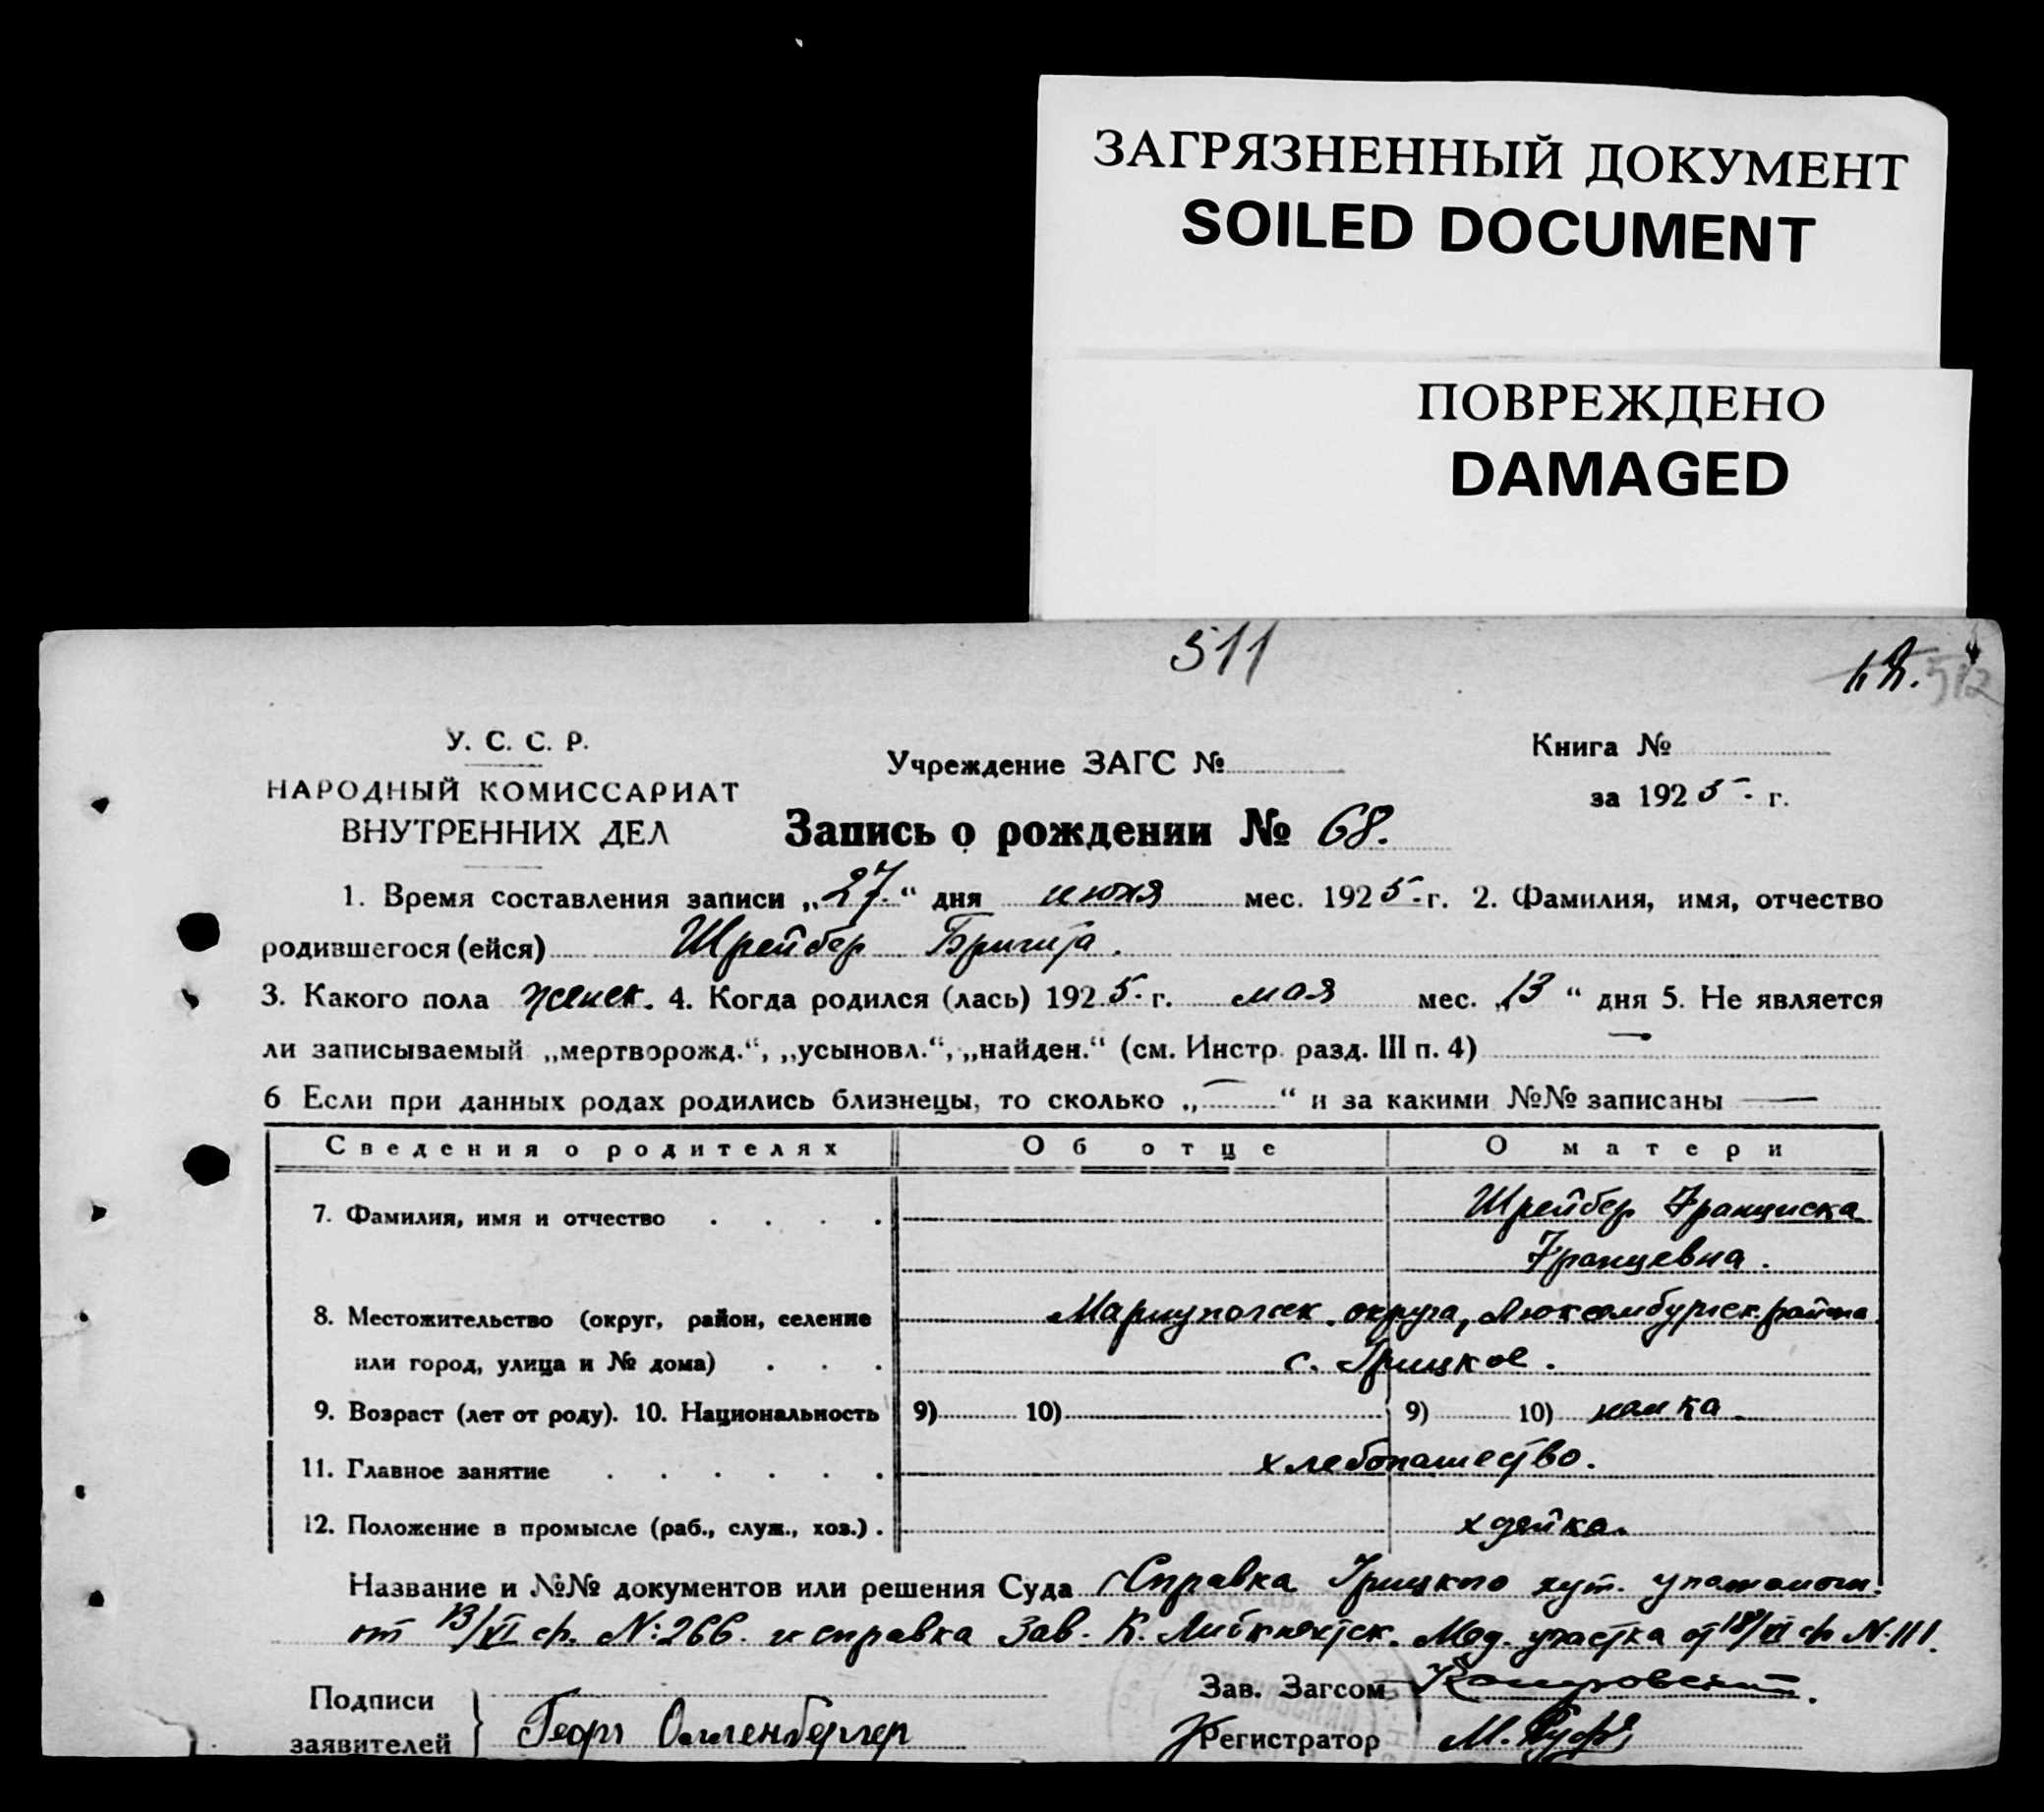 ЗАГРЯЗНЕННЫЙ ДОКУМЕНТ
SOILED DOCUMENT
ПОВРЕЖДЕНО
DAMAGED
511
512
У. С. С. Р.
НАРОДНЫЙ КОМИССАРИАТ
ВНУТРЕННИХ ДЕЛ
Учреждение ЗАГС №
Книга №
за 1925. г.
Запись о рождении № 68.
1. Время составления записи „27.“ дня июня мес. 1925.г. 2. Фамилия, имя, отчество
родившегося (ейся) Шрейбер Бригита.
3. Какого пола женск. 4. Когда родился (лась) 1925. г. мая мес. „13“ дня 5. Не является
ли записываемый „мертворожд.“, „усыновл.“, „найден.“ (см. Инстр. разд. III п. 4) —
6 Если при данных родах родились близнецы, то сколько „—“ и за какими №№ записаны —
Сведения о родителях Об отце О матери
7. Фамилия, имя и отчество . . . . Шрейбер Франциска
Францевна.
8. Местожительство (округ, район, селение Мариупольск. округа, Люксембургск. района
или город, улица и № дома) . . . с.
9. Возраст (лет от роду). 10. Национальность 9) 10) 9) 10) немка.
11. Главное занятие . . . . . . хлебопашество.
12. Положение в промысле (раб., служ., хоз.) . хозяйка.
Название и №№ документов или решения Суда Справка хут. уполномоч.
от 13/VI с/г. №:266. и справка Зав. К. Либкнехтск. Мед. участка от 18/VI с/г №111.
Подписи
заявителей } Георг
Зав. Загсом
Регистратор М.